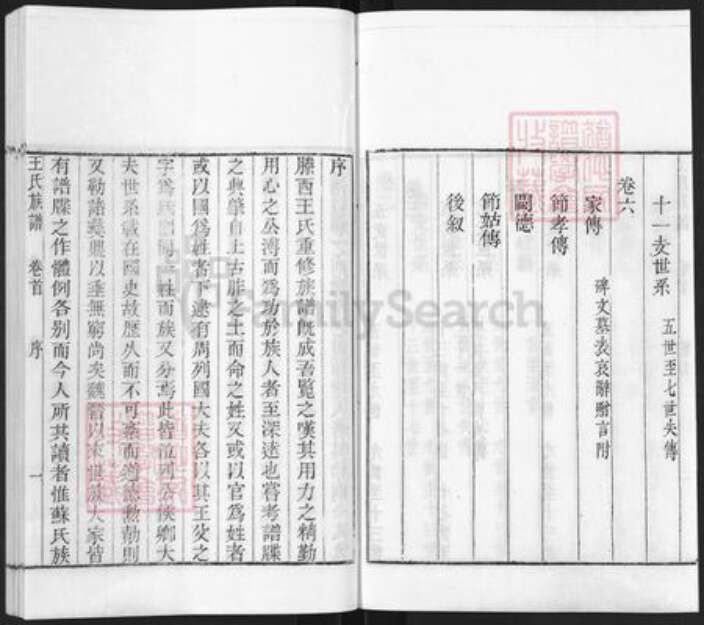 十一支世系 五世至七世失傳
卷六
家傳 碑文墓表哀辭贈言附
節孝傳
閫德
節姑傳
後叙
序
滕西王氏重修族譜既成吾覽之嘆其用力之精勤
用心之公溥而為功於族人者至深遠也嘗考譜牒
之興肇自上古胙之土而命之姓又或以官為姓者
或以國為姓者下逮有周列國大夫各以其王父之
字為氏 姓而族又分焉此皆 列公侯卿大
夫世系載在國史故歷久而不可 而 則
又勒諸 以垂無窮尚矣魏晉以 世 大家皆
有譜牒之作體例各别而今人所共讀者惟蘇氏族
王氏族譜 卷首 序 一
FamilySearch